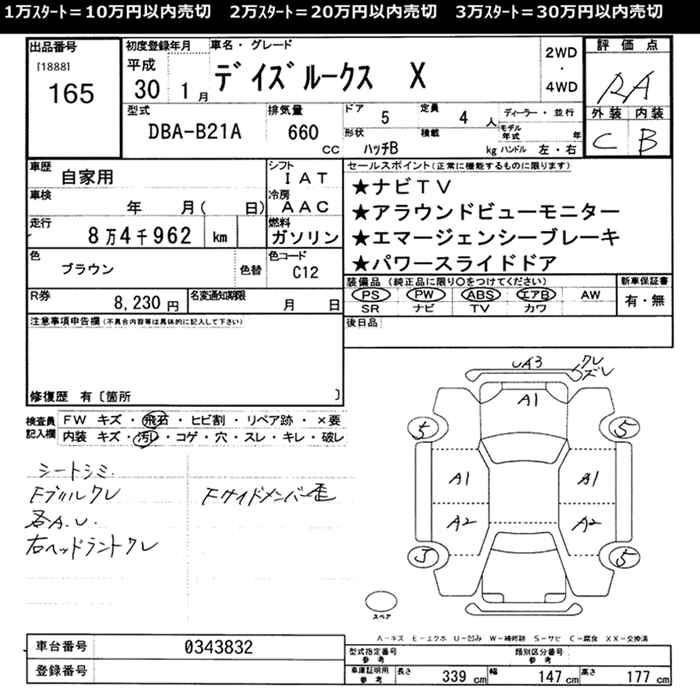 1万ｽﾀｰﾄ＝10万円以内売切　2万ｽﾀｰﾄ＝20万円以内売切　3万ｽﾀｰﾄ＝30万円以内売切
出品番号
[1888]
165
初度登録年月
平成
30 1月
車名・グレード
デイズルークス X
2WD
・
4WD
評価点
RA
外装 内装
C B
型式
DBA-B21A
排気量
660
CC
ドア
5
定員
4 人
ディーラー・並行
形状
ハッチB
積載
kg
モデル年式
年
ハンドル 左・右
車歴
自家用
シフト
IAT
車検
年 月( 日)
冷房
AAC
走行
8万4千962 km
燃料
ガソリン
色
ブラウン
色替
色コード
C12
R券
8,230 円
名変通知期限
月 日
セールスポイント(正常に機能するものに限ります)
★ナビTV
★アラウンドビューモニター
★エマージェンシーブレーキ
★パワースライドドア
装備品 (純正品に限り○をつけてください)
PS PW ABS エアB AW
SR ナビ TV カワ
新車保証書
有・無
後日品
注意事項申告欄(不具合内容等は具体的に記入して下さい)
修復歴 有〔箇所 〕
検査員
記入欄
FW キズ・飛石・ヒビ割・リペア跡・×要
内装 キズ・汚レ・コゲ・穴・スレ・キレ・破レ
シートシミ
Fブルクレ
各A.U.
右ヘッドライトクレ
Fサイドメンバー歪
UA3
クレ
ズレ
A1
5 5
A1 A1
A2 A2
5
スペア
A−キズ E−エクボ U−凹み W−補修跡 S−サビ C−腐食 XX−交換済
車台番号
0343832
登録番号
型式指定番号
参考
類別区分番号
参考
車庫証明用
参考
長さ 339 cm 幅 147 cm 高さ 177 cm